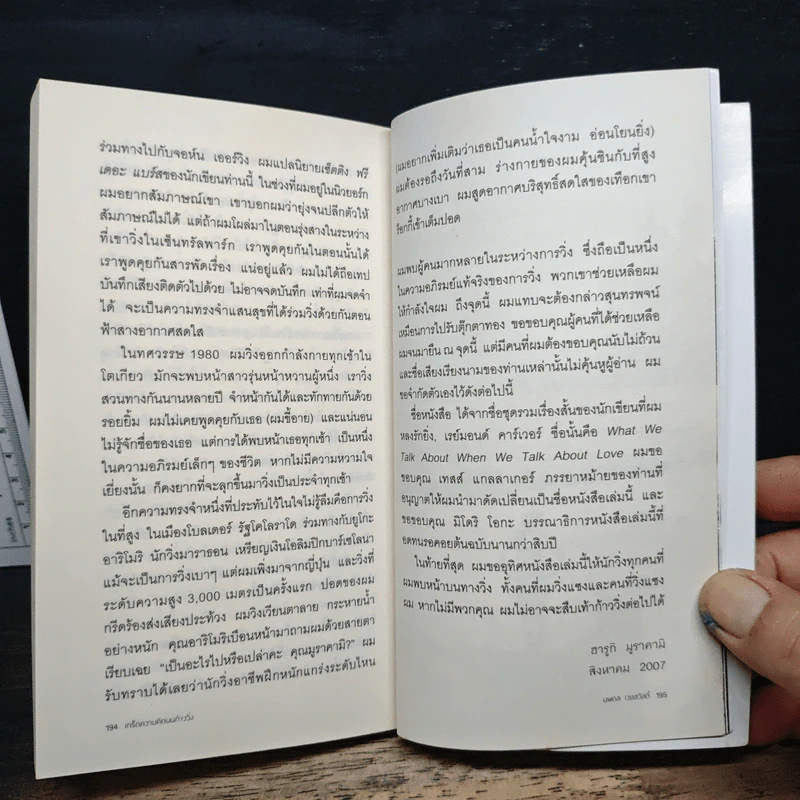 ร่วมทางไปกับจอห์น เออร์วิง ผมแปลนิยายเซ็ตติง ฟรี
เดอะ แบร์สของนักเขียนท่านนี้ ในช่วงที่ผมอยู่ในนิวยอร์ก
ผมอยากสัมภาษณ์เขา เขาบอกผมว่ายุ่งจนปลีกตัวให้
สัมภาษณ์ไม่ได้ แต่ถ้าผมโผล่มาในตอนรุ่งสางในระหว่าง
ที่เขาวิ่งในเซ็นทรัลพาร์ก เราพูดคุยกันในตอนนั้นได้
เราพูดคุยกันสารพัดเรื่อง แน่อยู่แล้ว ผมไม่ได้ถือเทป
บันทึกเสียงติดตัวไปด้วย ไม่อาจจดบันทึก เท่าที่ผมจดจำ
ได้ จะเป็นความทรงจำแสนสุขที่ได้ร่วมวิ่งด้วยกันตอน
ฟ้าสางอากาศสดใส
ในทศวรรษ 1980 ผมวิ่งออกกำลังกายทุกเช้าใน
โตเกียว มักจะพบหน้าสาวรุ่นหน้าหวานผู้หนึ่ง เราวิ่ง
สวนทางกันนานหลายปี จำหน้ากันได้และทักทายกันด้วย
รอยยิ้ม ผมไม่เคยพูดคุยกับเธอ (ผมขี้อาย) และแน่นอน
ไม่รู้จักชื่อของเธอ แต่การได้พบหน้าเธอทุกเช้า เป็นหนึ่ง
ในความอภิรมย์เล็กๆ ของชีวิต หากไม่มีความหวามใจ
เยี่ยงนั้น ก็คงยากที่จะลุกขึ้นมาวิ่งเป็นประจำทุกเช้า
อีกความทรงจำหนึ่งที่ประทับไว้ในใจไม่รู้ลืมคือการวิ่ง
ในที่สูง ในเมืองโบลเดอร์ รัฐโคโลราโด ร่วมทางกับยูโกะ
อาริโมริ นักวิ่งมาราธอน เหรียญเงินโอลิมปิกบาร์เซโลนา
แม้จะเป็นการวิ่งเบาๆ แต่ผมเพิ่งมาจากญี่ปุ่น และวิ่งที่
ระดับความสูง 3,000 เมตรเป็นครั้งแรก ปอดของผม
กรีดร้องส่งเสียงประท้วง ผมวิงเวียนตาลาย กระหายน้ำ
อย่างหนัก คุณอาริโมริเบือนหน้ามาถามผมด้วยสายตา
เรียบเฉย “เป็นอะไรไปหรือเปล่าคะ คุณมูราคามิ?” ผม
รับทราบได้เลยว่านักวิ่งอาชีพฝึกหนักแกร่งระดับไหน
194 เกร็ดความคิดบนก้าววิ่ง
(ผมอยากเพิ่มเติมว่าเธอเป็นคนน้ำใจงาม อ่อนโยนยิ่ง)
ผมต้องรอถึงวันที่สาม ร่างกายของผมคุ้นชินกับที่สูง
อากาศบางเบา ผมสูดอากาศบริสุทธิ์สดใสของเทือกเขา
ร็อกกี้เข้าเต็มปอด
ผมพบผู้คนมากหลายในระหว่างการวิ่ง ซึ่งถือเป็นหนึ่ง
ในความอภิรมย์แท้จริงของการวิ่ง พวกเขาช่วยเหลือผม
ให้กำลังใจผม ถึงจุดนี้ ผมแทบจะต้องกล่าวสุนทรพจน์
เหมือนการไปรับตุ๊กตาทอง ขอขอบคุณผู้คนที่ได้ช่วยเหลือ
ผมจนมายืน ณ จุดนี้ แต่มีคนที่ผมต้องขอบคุณนับไม่ถ้วน
และชื่อเสียงเรียงนามของท่านเหล่านั้นไม่คุ้นหูผู้อ่าน ผม
ขอจำกัดตัวเองไว้ดังต่อไปนี้
ชื่อหนังสือ ได้จากชื่อชุดรวมเรื่องสั้นของนักเขียนที่ผม
หลงรักยิ่ง, เรย์มอนด์ คาร์เวอร์ ชื่อนั้นคือ What We
Talk About When We Talk About Love ผมขอ
ขอบคุณ เทสส์ แกลลาเกอร์ ภรรยาหม้ายของท่านที่
อนุญาตให้ผมนำมาดัดเปลี่ยนเป็นชื่อหนังสือเล่มนี้ และ
ขอขอบคุณ มิโดริ โอกะ บรรณาธิการหนังสือเล่มนี้ที่
อดทนรอคอยต้นฉบับนานกว่าสิบปี
ในท้ายที่สุด ผมขออุทิศหนังสือเล่มนี้ให้นักวิ่งทุกคนที่
ผมพบหน้าบนทางวิ่ง ทั้งคนที่ผมวิ่งแซงและคนที่วิ่งแซง
ผม หากไม่มีพวกคุณ ผมไม่อาจจะสืบเท้าก้าววิ่งต่อไปได้
ฮารูกิ มูราคามิ
สิงหาคม 2007
นพดล เวชสวัสดิ์ 195
inches